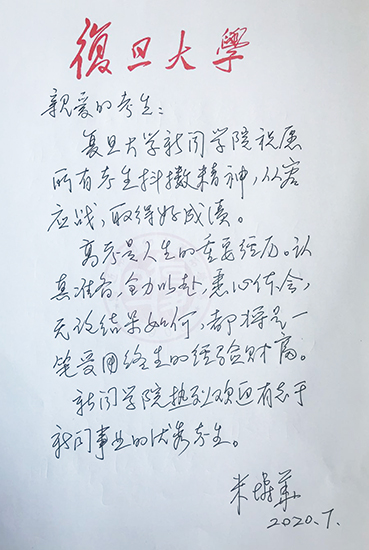 復旦大學
亲爱的考生：
复旦大学新闻学院祝愿
所有考生抖擞精神，从容
应战，取得好成绩。
高考是人生的重要经历。认
真准备，全力以赴，悉心体会，
无论结果如何，都将是一
笔受用终生的经验财富。
新闻学院热烈欢迎有志于
新闻事业的优秀考生。
米博华
2020.7.